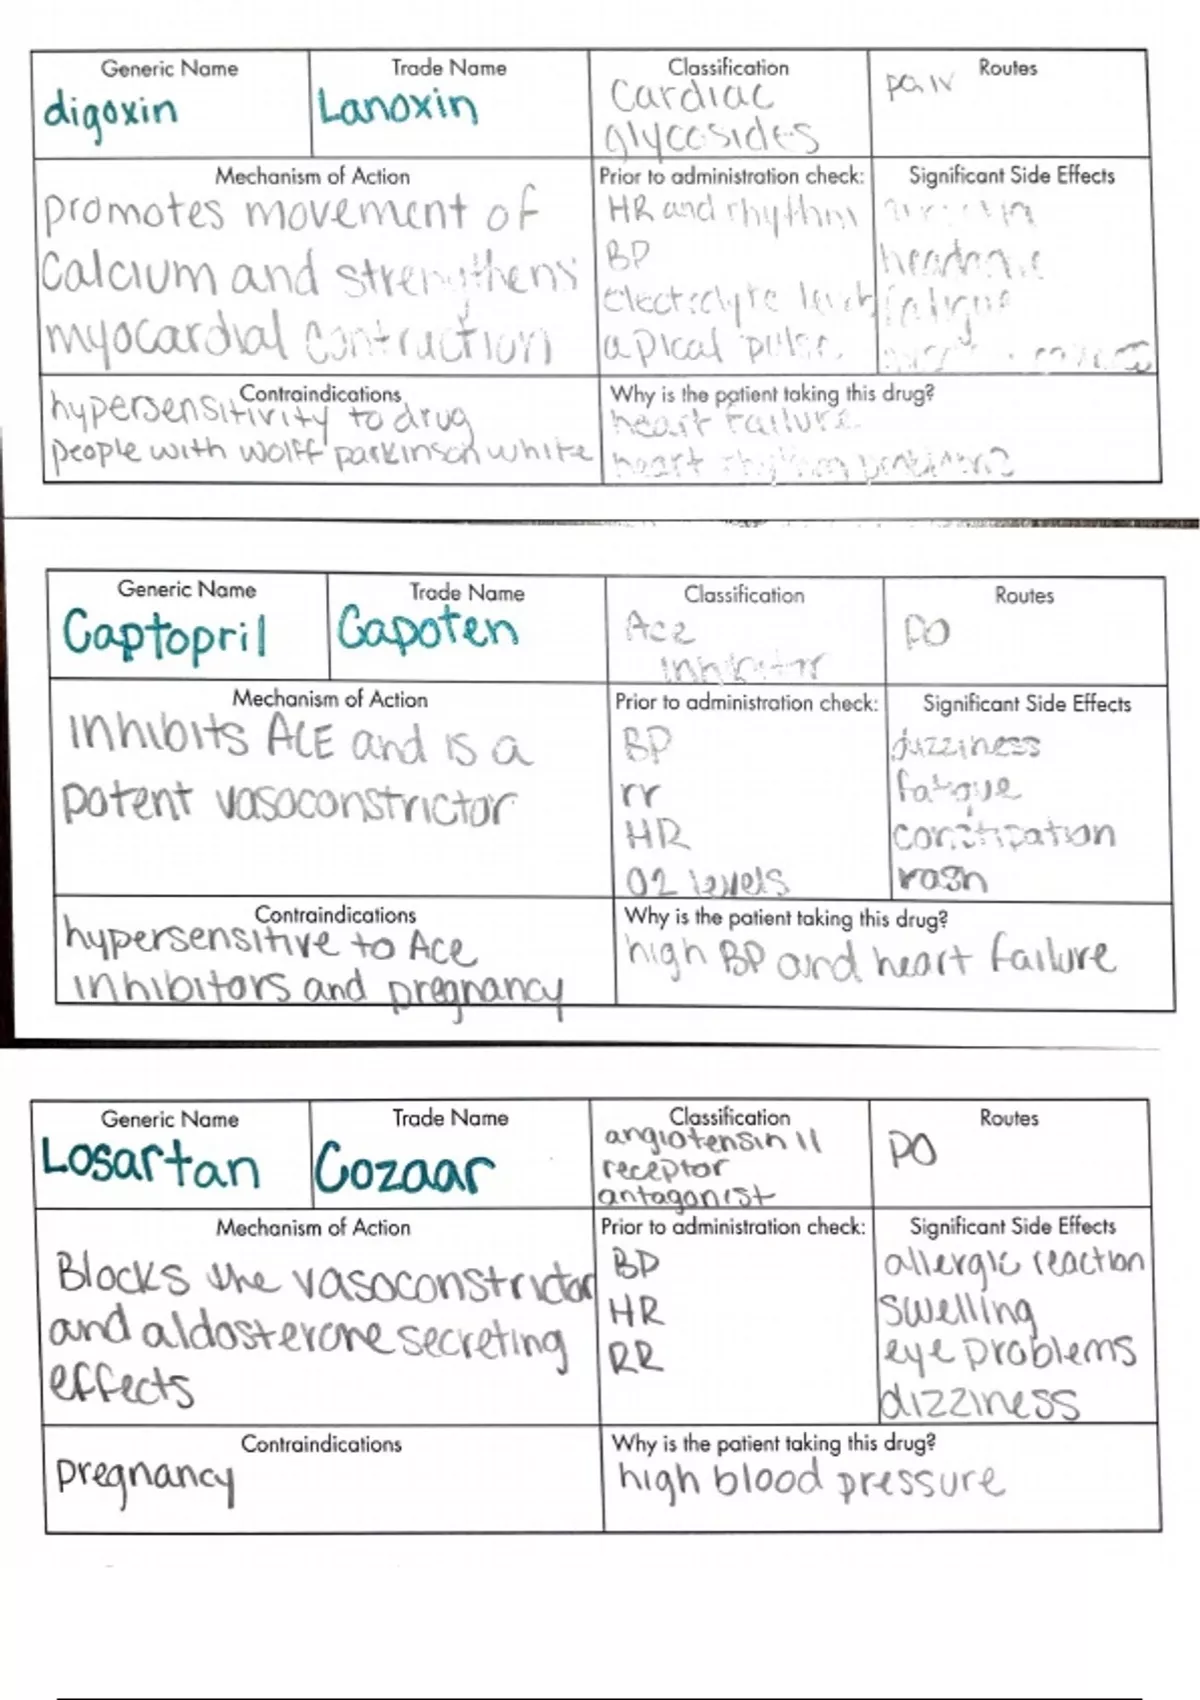 Generic Name
digoxin
Trade Name
Lanoxin
Classification
Cardiac
glycosides
Routes
PO, IV
Mechanism of Action
promotes movement of
Calcium and strengthens
myocardial contraction
Prior to administration check:
HR and rhythm
BP
electrolyte levels
apical pulse
Significant Side Effects
headache
fatigue
Contraindications
hypersensitivity to drug
people with wolff parkinson white
Why is the patient taking this drug?
heart failure
heart rhythm problems
Generic Name
Captopril
Trade Name
Capoten
Classification
Ace
inhibitor
Routes
PO
Mechanism of Action
inhibits ACE and is a
potent vasoconstrictor
Prior to administration check:
BP
rr
HR
O2 levels
Significant Side Effects
dizziness
fatigue
constipation
rash
Contraindications
hypersensitive to Ace
inhibitors and pregnancy
Why is the patient taking this drug?
high BP and heart failure
Generic Name
Losartan
Trade Name
Cozaar
Classification
angiotensin II
receptor
antagonist
Routes
PO
Mechanism of Action
Blocks the vasoconstrictor
and aldosterone secreting
effects
Prior to administration check:
BP
HR
RR
Significant Side Effects
allergic reaction
swelling
eye problems
dizziness
Contraindications
pregnancy
Why is the patient taking this drug?
high blood pressure